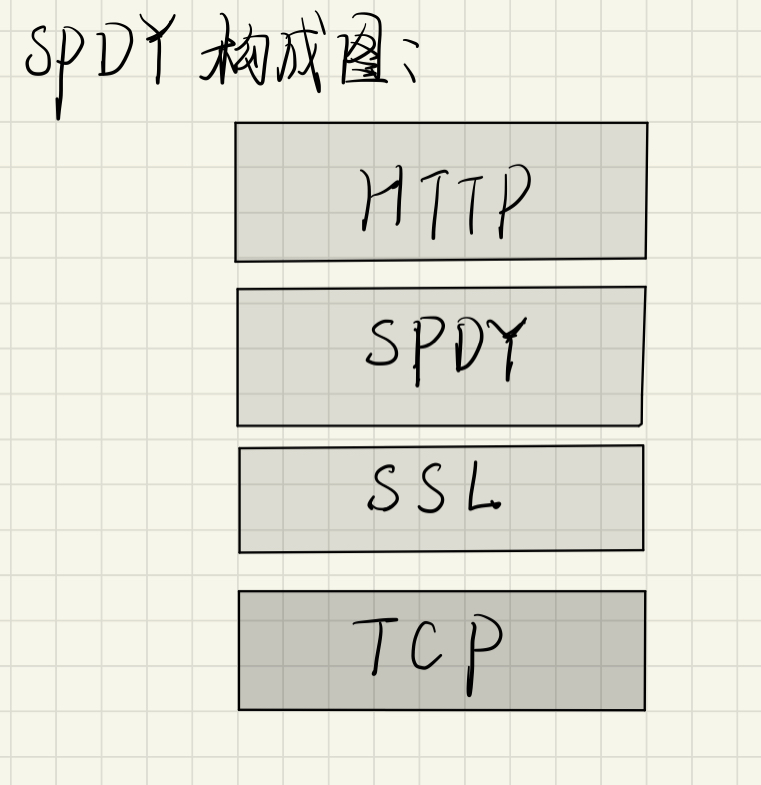 SPDY 构成图:
HTTP
SPDY
SSL
TCP